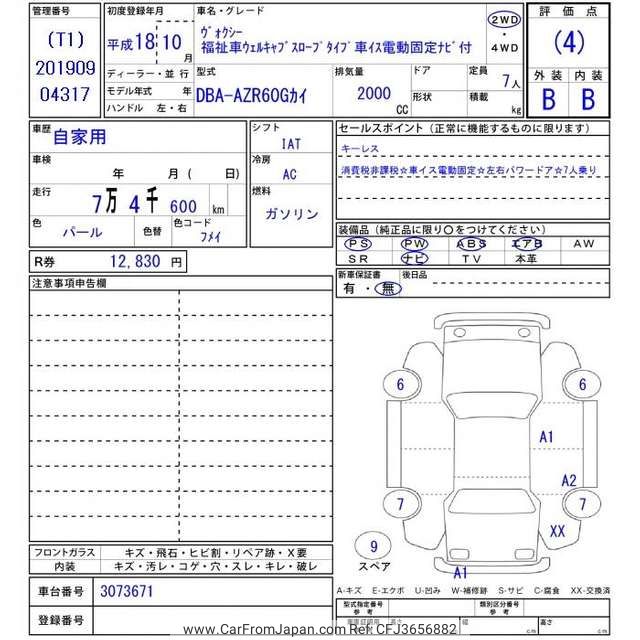 管理番号
(T1)
201909
04317
初度登録年月
平成18年10月
ディーラー・並行
モデル年式 年
ハンドル 左・右
車名・グレード
ヴォクシー
福祉車ウェルキャブスロープタイプ車イス電動固定ナビ付
2WD
・
4WD
型式
DBA-AZR60Gカイ
排気量
2000
CC
ドア
形状
定員
7人
積載
kg
評価点
(4)
外装 内装
B B
車歴
自家用
車検
年 月( 日)
走行
7万4千600 km
色
パール
色替
色コード
フメイ
シフト
IAT
冷房
AC
燃料
ガソリン
セールスポイント(正常に機能するものに限ります)
キーレス
消費税非課税☆車イス電動固定☆左右パワードア☆7人乗り
装備品(純正品に限り〇をつけてください)
PS PW ABS エアB AW
SR ナビ TV 本革
新車保証書
有・無
後日品
R券 12,830 円
注意事項申告欄
6 6
A1
A2
7 7
XX
9
スペア
A1
フロントガラス キズ・飛石・ヒビ割・リペア跡・X要
内装 キズ・汚レ・コゲ・穴・スレ・キレ・破レ
車台番号 3073671
登録番号
A-キズ E-エクボ U-凹み W-補修跡 S-サビ C-腐食 XX-交換済
型式指定番号 類別区分番号
長さ 幅 高さ
cm cm cm
www.CarFromJapan.com Ref CFJ3656882